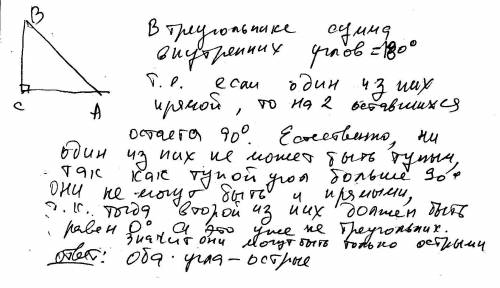 В
С
А
В треугольнике сумма
внутренних углов = 180°
Т.е. если один из них
прямой, то на 2 оставшихся
остается 90°. Естественно, ни
один из них не может быть тупым,
так как тупой угол больше 90°
они не могут быть и прямыми,
т.к. тогда второй из них должен быть
равен 0° а это уже не треугольник.
значит они могут быть только острыми
Ответ: Оба угла - острые